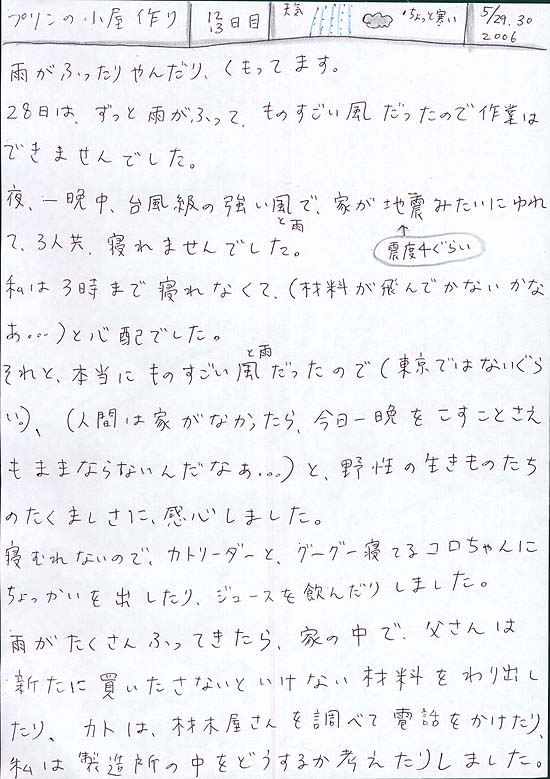 プリンの小屋作り 12 13 日目 天気 ちょっと寒い 5/29.30 2006
雨がふったりやんだり、くもってます。
28日は、ずっと雨がふって、ものすごい風だったので作業は
できませんでした。
夜、一晩中、台風級の強い風と雨で、家が地震みたいにゆれ
て、3人共、寝れませんでした。
震度4ぐらい
私は3時まで寝れなくて、(材料が飛んでかないかな
あ...)と心配でした。
それと、本当にものすごい風と雨だったので(東京ではないぐら
い。)、(人間は家がなかったら、今日一晩をこすことさえ
もままならないんだなぁ...)と、野性の生きものたち
のたくましさに、感心しました。
寝むれないので、カトリーダーと、グーグー寝てるコロちゃんに
ちょっかいを出したり、ジュースを飲んだりしました。
雨がたくさんふってきたら、家の中で、父さんは
新たに買いたさないといけない材料をわり出し
たり、カトは、材木屋さんを調べて電話をかけたり、
私は製造所の中をどうするか考えたりしました。